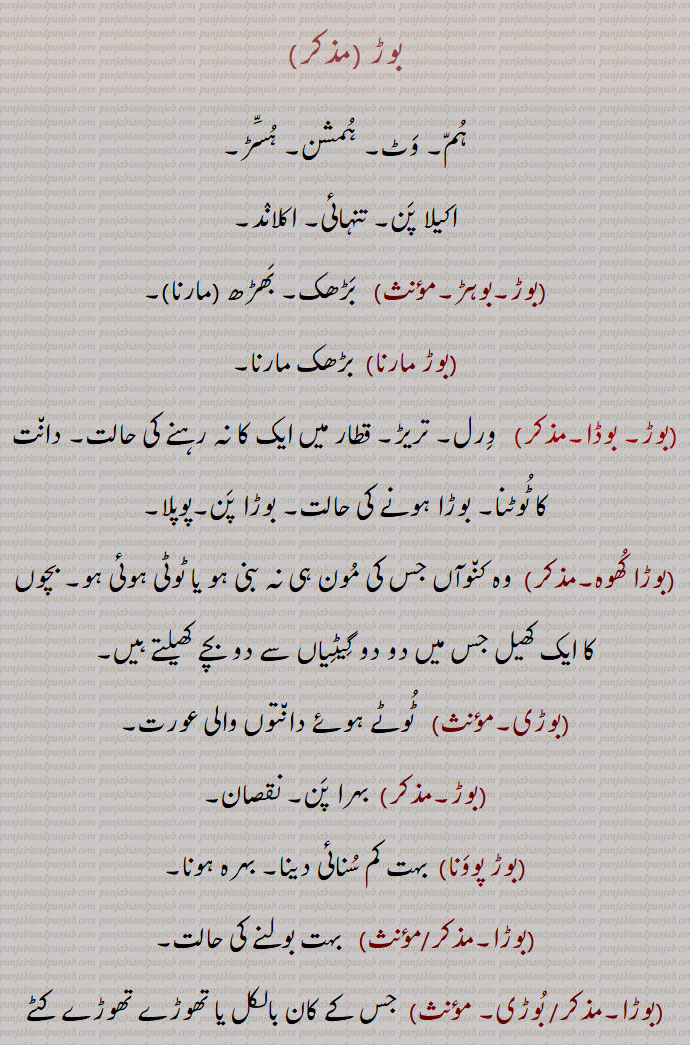 بوڑ (مذکر)
ہُمّ۔ وَٹ۔ ہُمشن۔ ہُسِّڑ۔
اکیلا پَن۔ تنہائی۔ اکلاند۔
(بوڑ۔بوہڑ۔مؤنث) بَڑھک۔ بَھڑھ (مارنا)۔
(بوڑ مارنا) بڑھک مارنا۔
(بوڑ۔ بوڈا۔مذکر) وِرل۔ تریڑ۔ قطار میں ایک کا نہ رہنے کی حالت۔ دانّت
کا ٹُوٹنا۔ بوڑا ہونے کی حالت۔ بوڑا پَن۔پوپلا۔
(بوڑا کُھوہ۔مذکر) وہ کنّوآں جس کی مُون ہی نہ بنی ہو یا ٹوٹی ہوئی ہو۔ بچوں
کا ایک کھیل جس میں دو دو گِیٹِیاں سے دو بچے کھیلتے ہیں۔
(بوڑی۔مؤنث) ٹُوٹے ہوئے دانّتوں والی عورت۔
(بوڑ۔مذکر) بہرا پَن۔ نقصان۔
(بوڑ پووَنا) بہت کم سُنائی دینا۔ بہرہ ہونا۔
(بوڑا۔مذکر/مؤنث) بہت بولنے کی حالت۔
(بوڑا۔مذکر/بُوڑی۔ مؤنث) جس کے کان بالکل یا تھوڑے تھوڑے کٹے